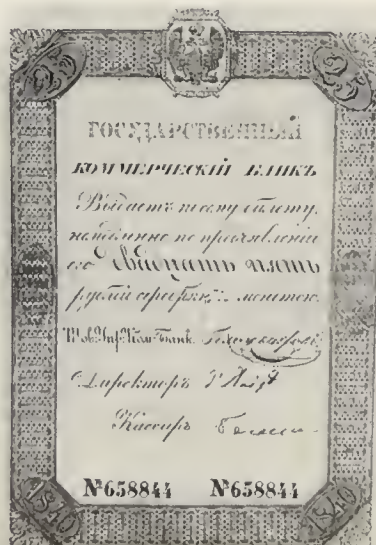 25 25
ГОСУДАРСТВЕННЫЙ
КОММЕРЧЕСКІЙ БАНКЪ
Выдаетъ по сему билету,
немедленно по предъявленіи
его двадцать пять
рублей серебр. монетою.
Директоръ
Кассиръ
№658844 №658844
1840 1840